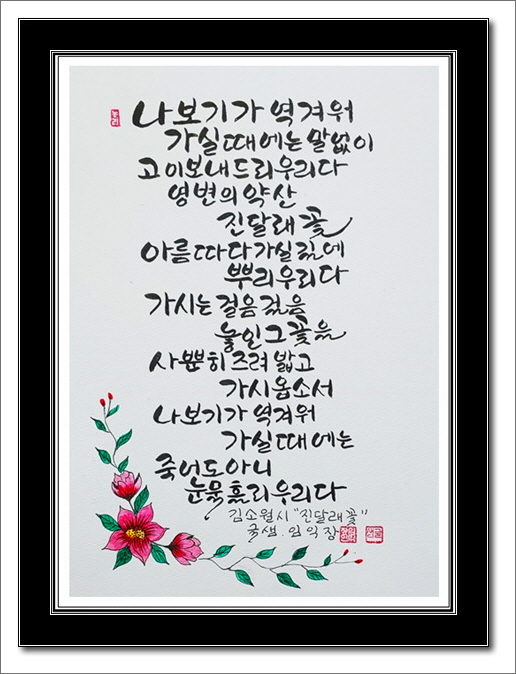 나보기가 역겨워
가실때에는 말없이
고이보내드리우리다
영변의 약산
진달래 꽃
아름따다 가실 길에
뿌리우리다
가시는 걸음 걸음
놓인 그 꽃을
사뿐히 즈려 밟고
가시옵소서
나보기가 역겨워
가실때에는
죽어도 아니
눈물 흘리우리다
김소월 시 "진달래 꽃"
임익장